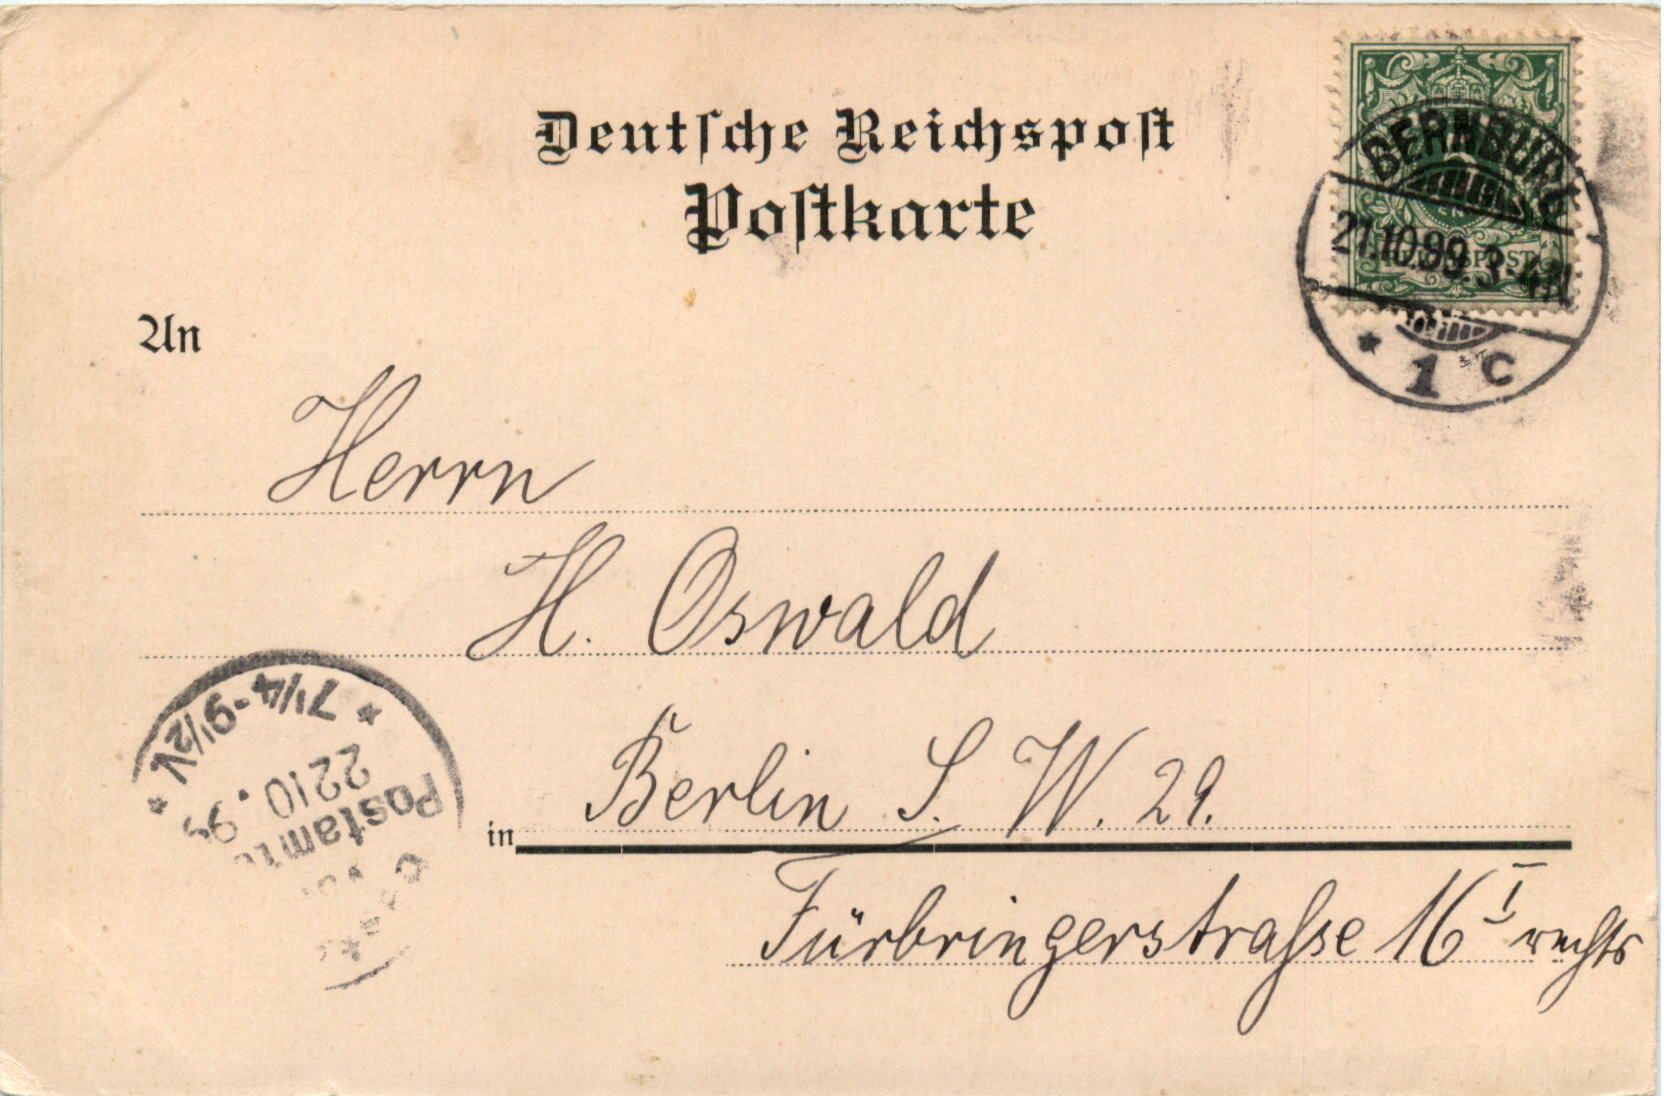 Deutsche Reichspost
Postkarte
BERNBURG
21.10.99. 3-4N.
* 1 c
REICHSPOST
An
Herrn
H. Oswald
in Berlin S. W. 29.
Fürbringerstraße 16 I rechts
* 7 1/4-9 1/2V *
22 10. 99
Postamt